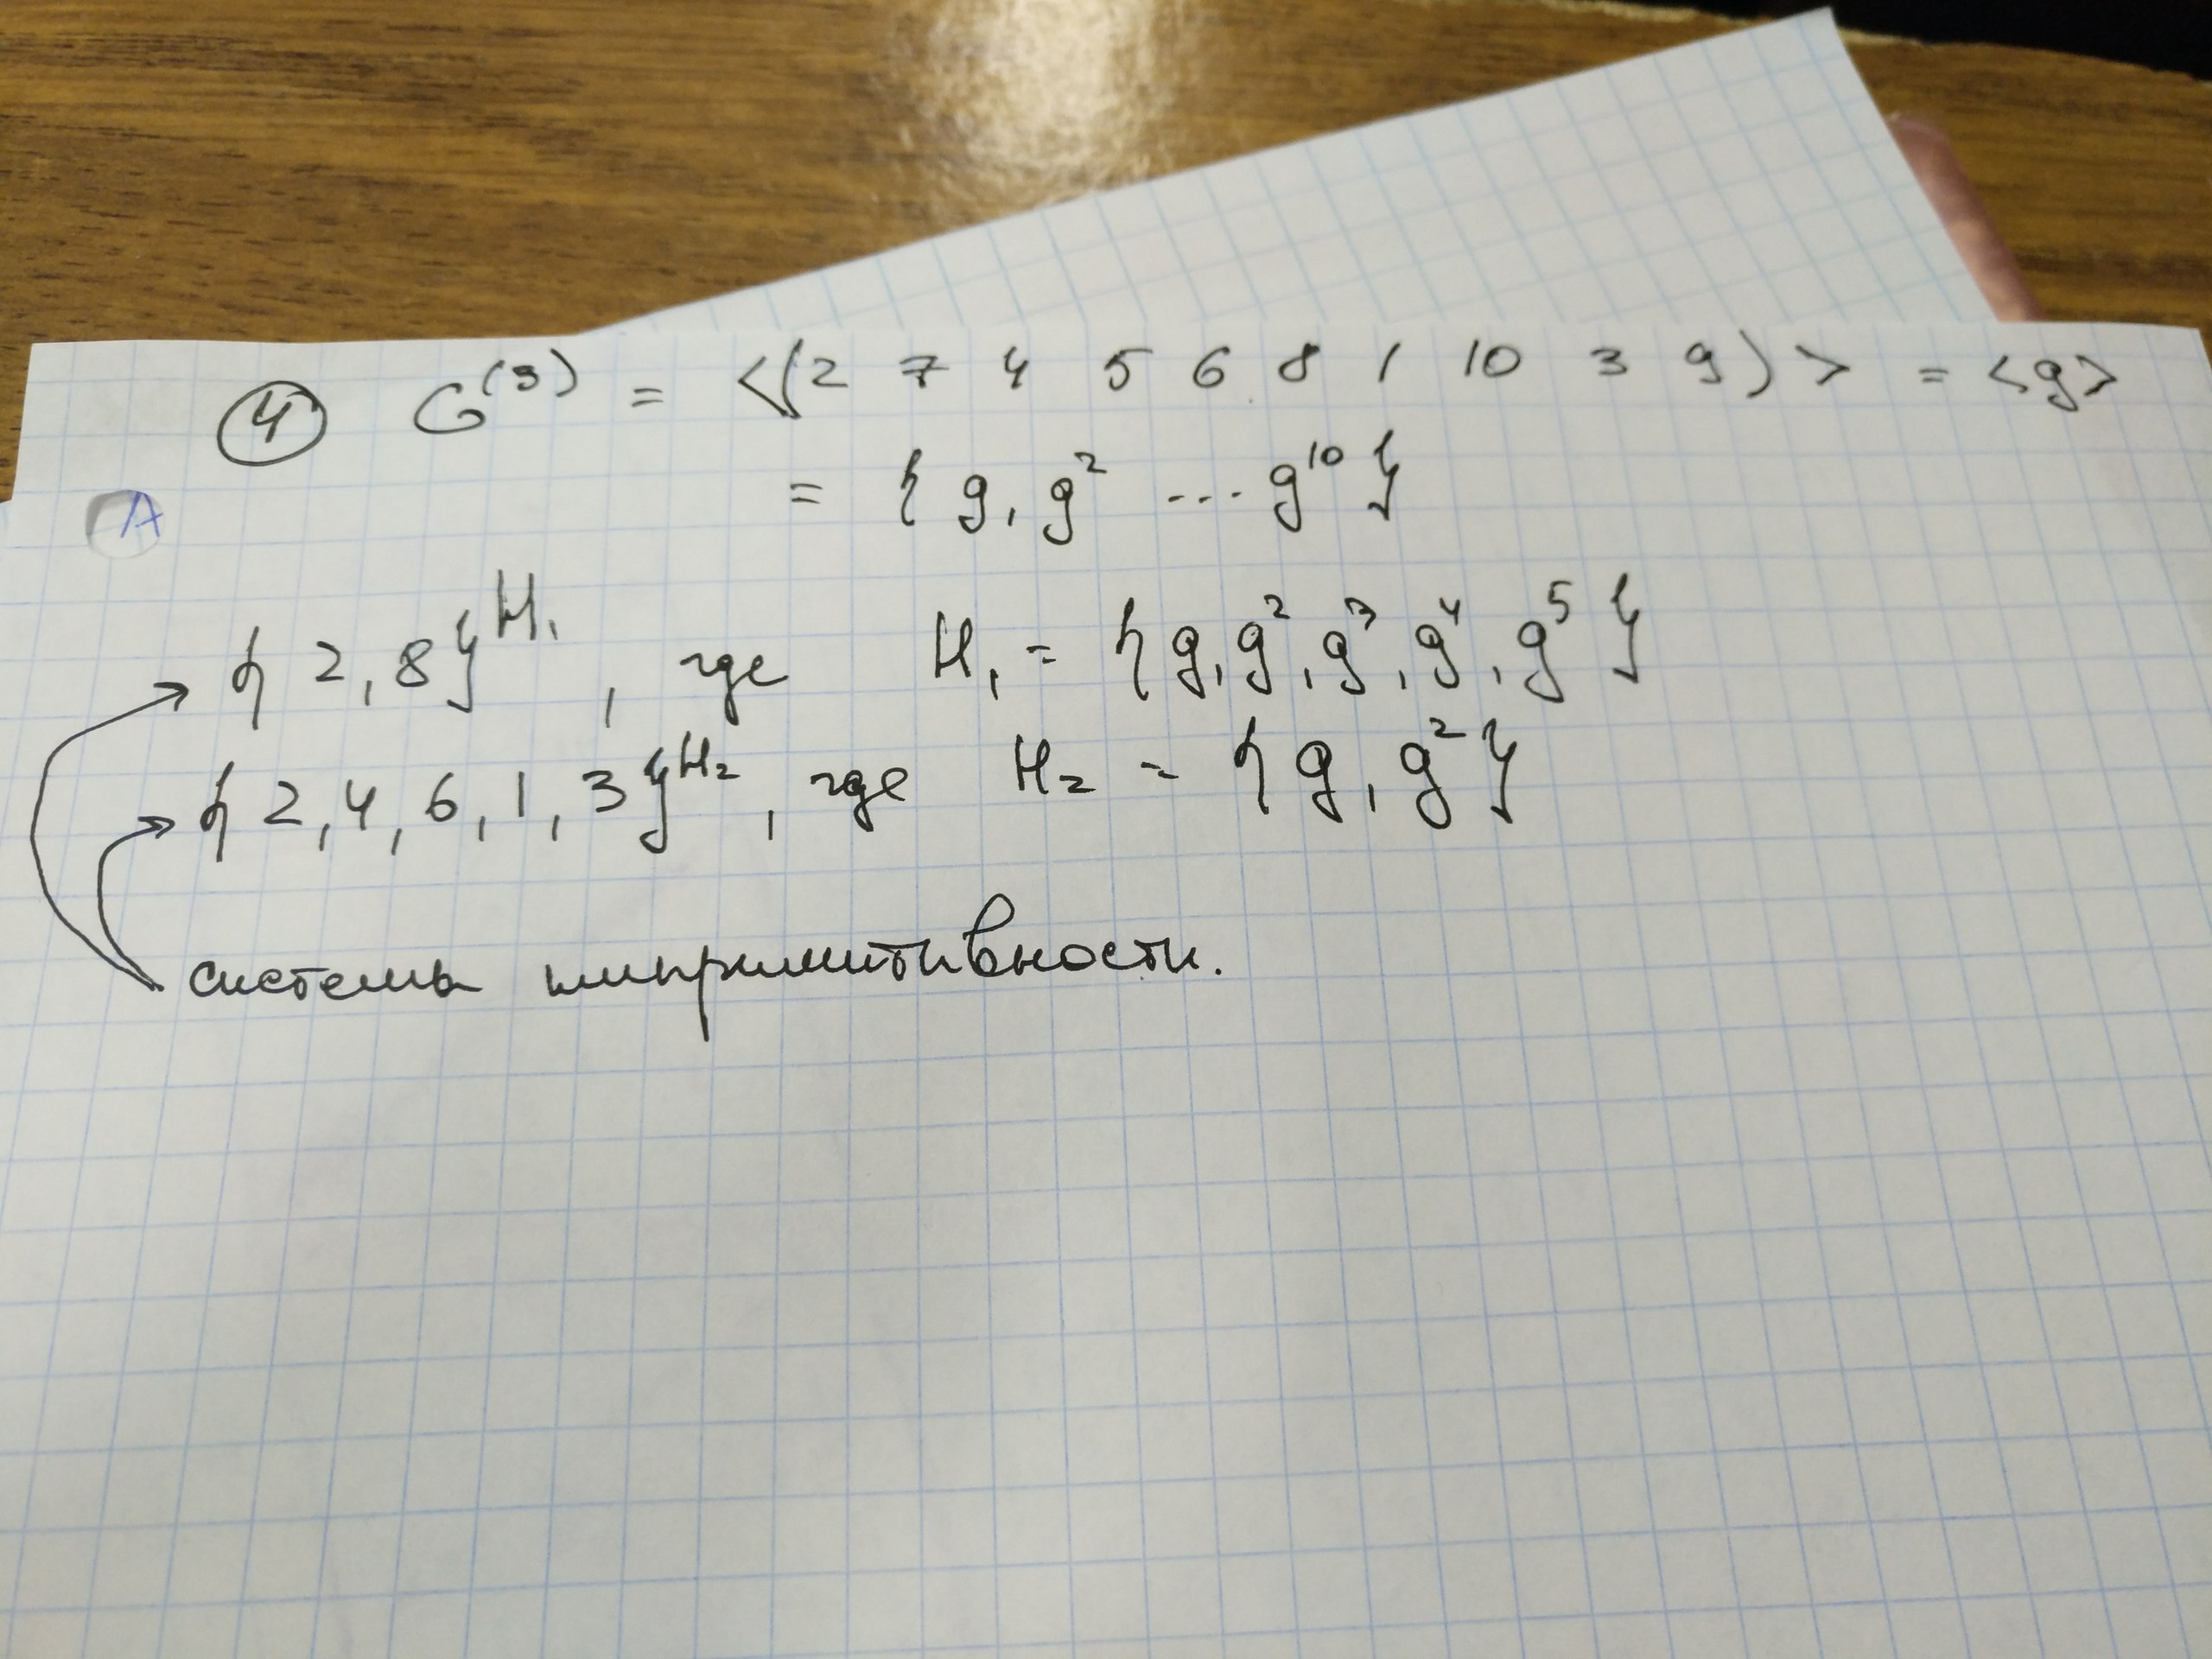 ④ G⁽³⁾ = <(2 7 4 5 6 8 1 10 3 9)> = <g>
= { g, g² ... g¹⁰ }
A
{ 2, 8 }^H₁, где H₁ = { g, g², g³, g⁴, g⁵ }
{ 2, 4, 6, 1, 3 }^H₂, где H₂ = { g, g² }
системы импримитивности.